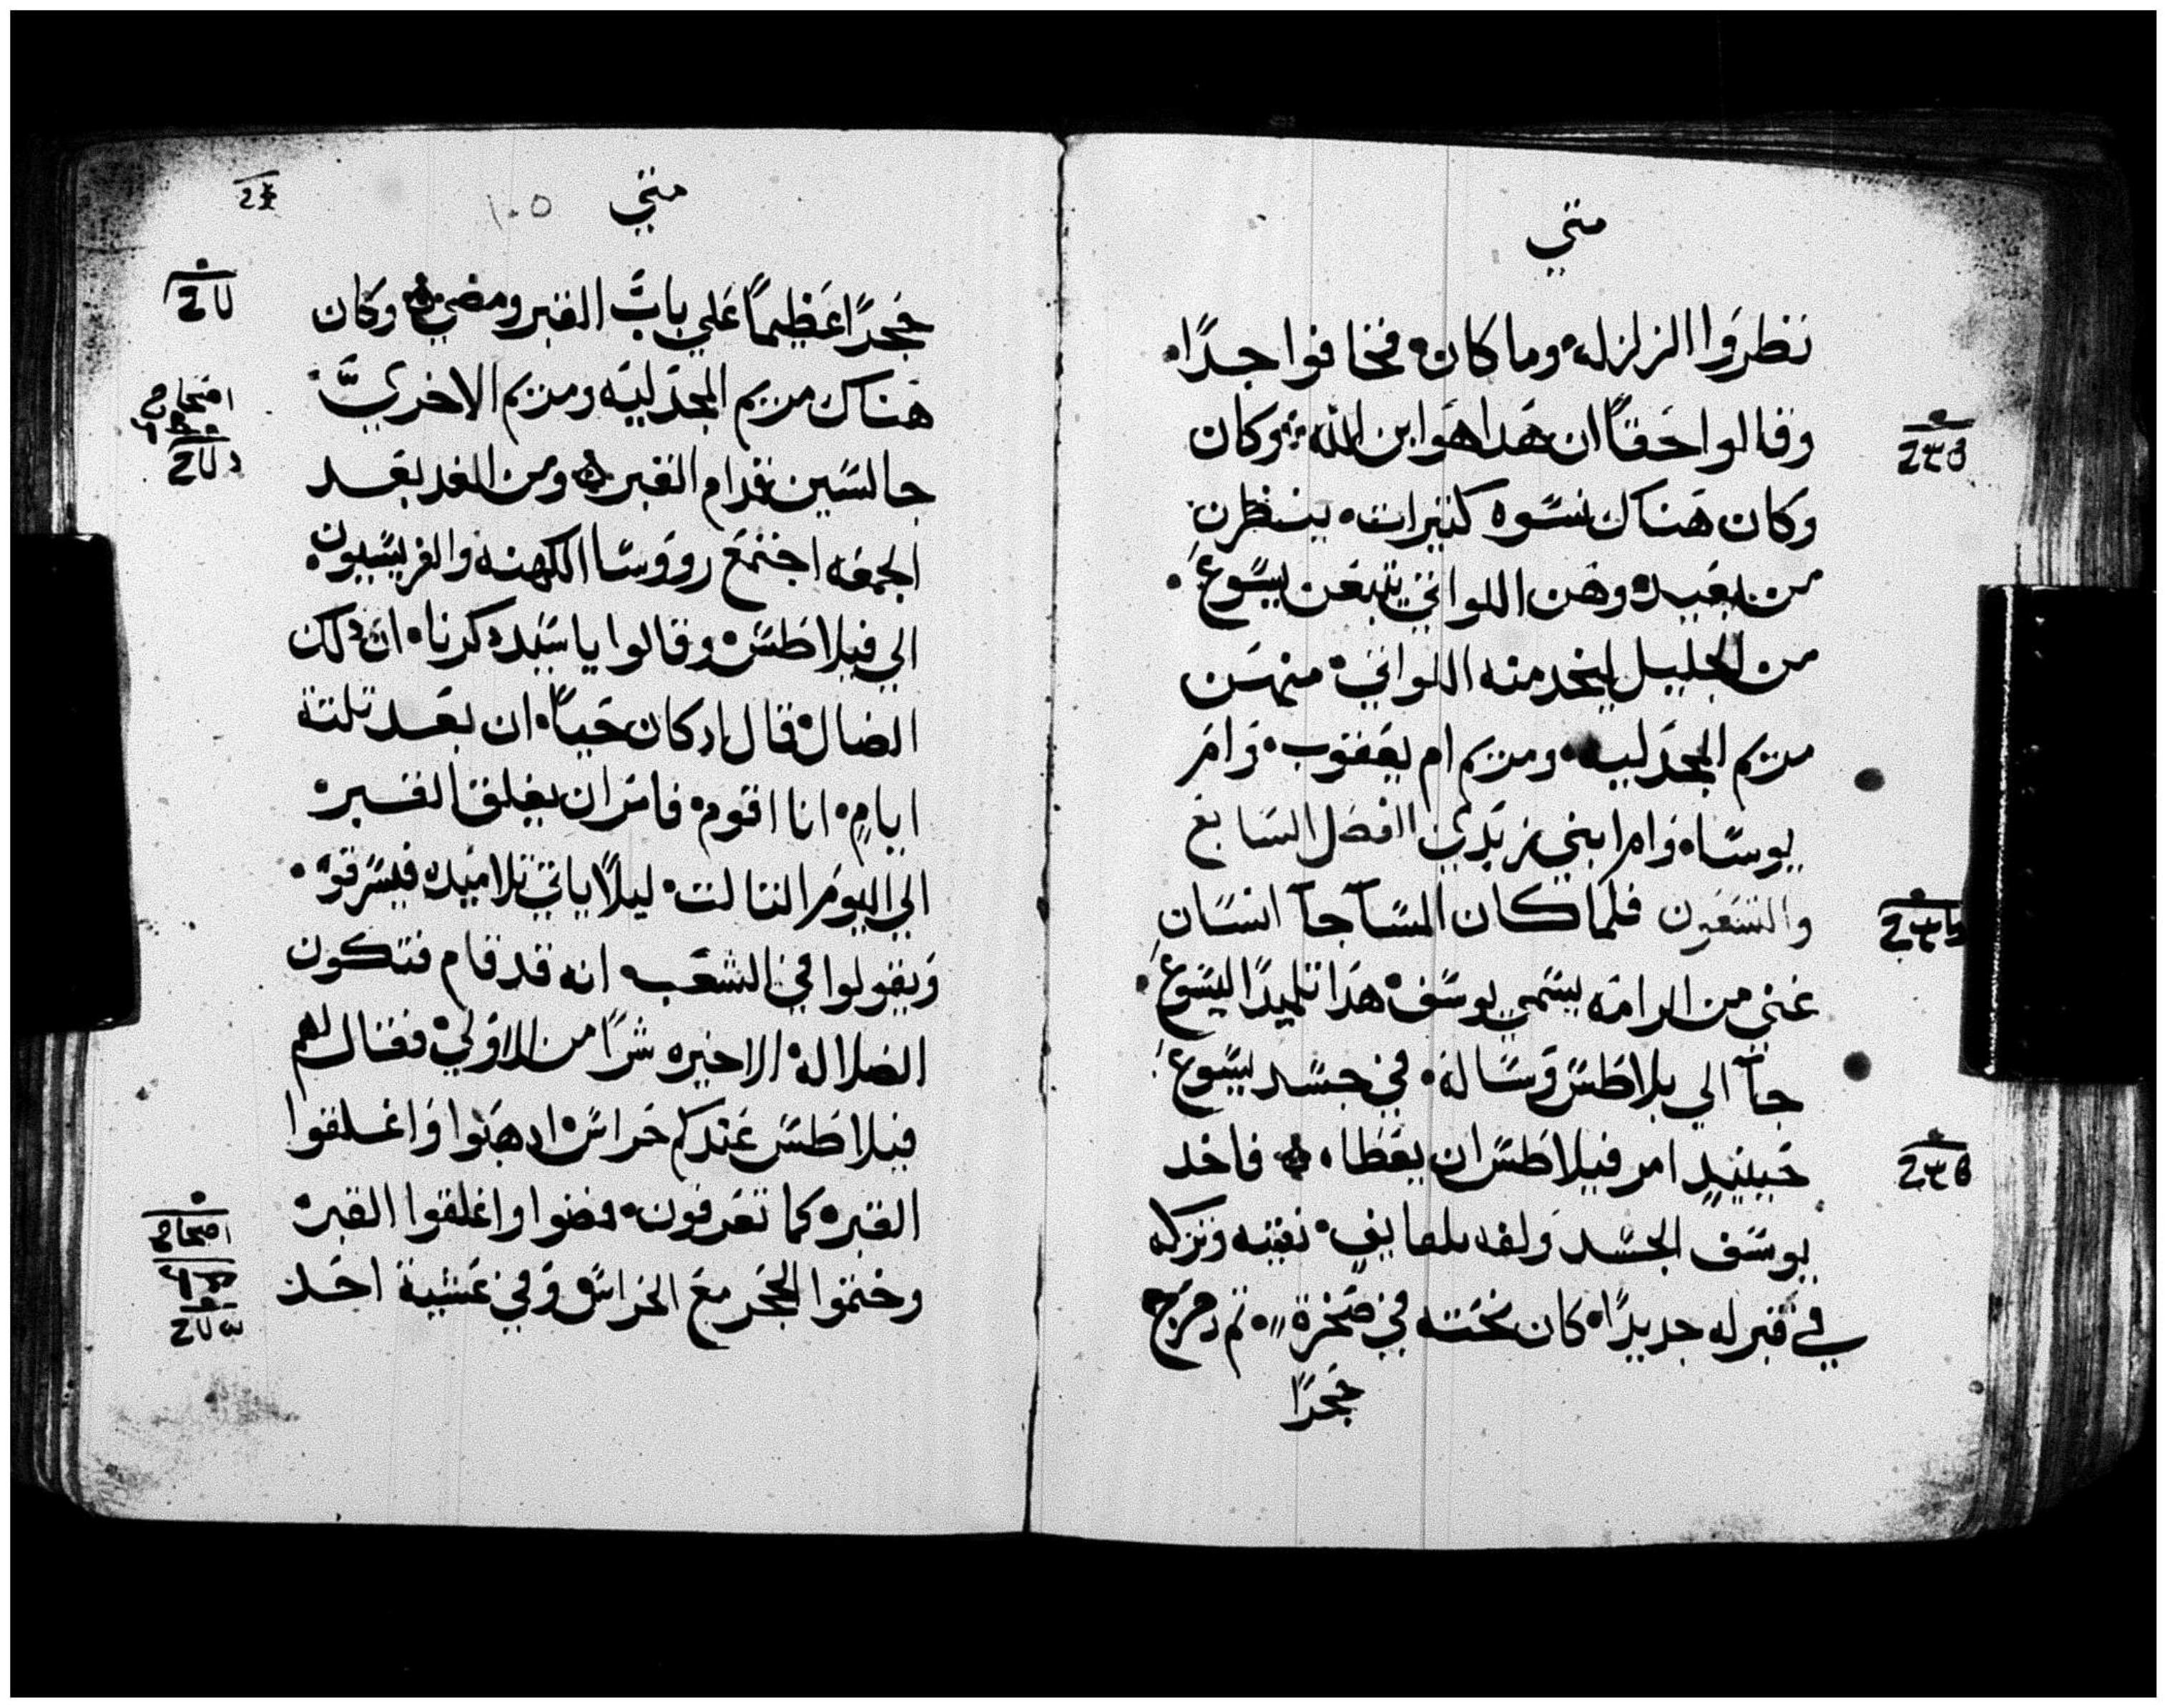 متي
نظروا الزلزله وما كان فخافوا جدًا
وقالوا حقًا ان هدا هو ابن الله وكان
وكان هناك نسوه كتيرات ينظرن
من بعيد وهن اللواتي يتبعن يسوع
من الجليل ليخدمنه اللواتي منهن
مريم المجدليه ومريم ام يعقوب وام
يوسا وام ابني زبدي الفصل السابع
والتسعون فلما كان المسآ جآ انسان
غني من الرامه يسمي يوسف هدا تلميدًا ليسوع
جآ الي بلاطس وساله في جسد يسوع
حينيدٍ امر فيلاطس ان يعطاه فاخد
يوسف الجسد ولفه بلفايف نقيه وتركه
في قبر له جديدًا كان نحته في صخرة تم دحرج
حجرًا
متي
١٠٥
حجرًا عظيمًا علي باب القبر ومضي وكان
هناك مريم المجدليه ومريم الاخري
جالسين قدام القبر ومن الغد بعد
الجمعه اجتمع رووسا الكهنه والفريسيون
الي فيلاطس وقالوا يا سيد دكرنا ان دلك
الضال قال اد كان حيًا ان بعد تلتة
ايامٍ انا اقوم فامر ان يغلق القبر
الي اليوم التالت ليلًا ياتي تلاميده فيسرقوه
ويقولوا في الشعب انه قد قام فتكون
الضلاله الاخيره شرًا من الاولي فقال لهم
فيلاطس عندكم حراس ادهبوا واغلقوا
القبر كما تعرفون فمضوا واغلقوا القبر
وختموا الحجر مع الحراس وفي عشية احد
اصحاح
اصحاح